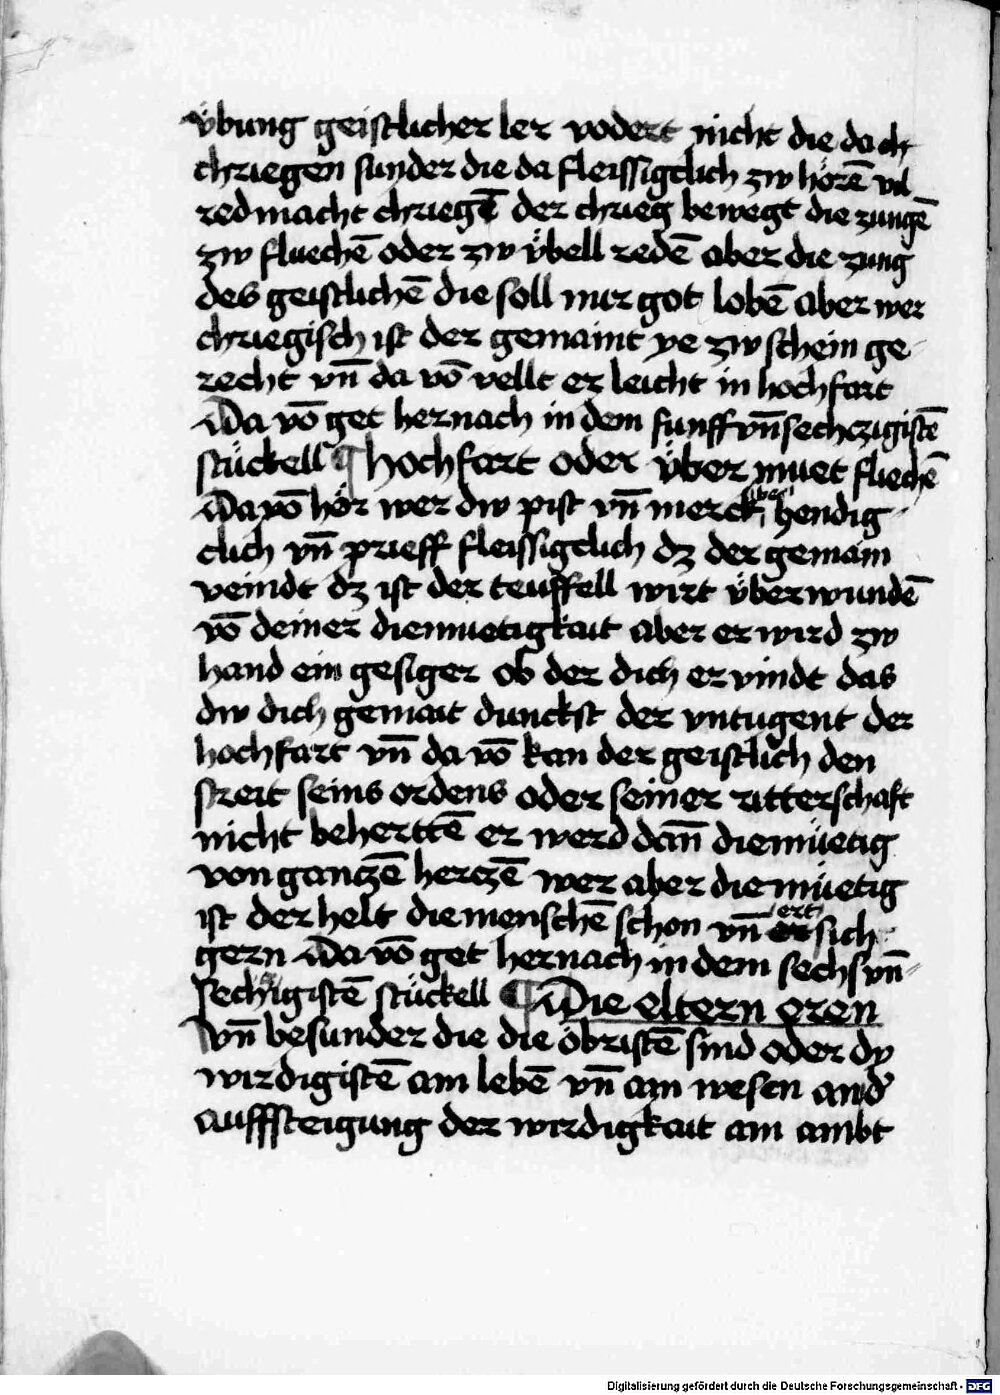 übung geistlicher ler vodert nicht die da ch
chriegen sunder die da fleissigclich zw hörē vil
red macht chriegē der chrieg bewegt die zungē
zw fluechē oder zw übell redē aber die zung
des geistlichē die soll nur got lobē aber wer
chriegisch ist der gemaint ye zw schein ge
recht vn̄ da vō vellt er leicht in hochfart
Da vō get hernach in dem funffvn̄sechczigistē
stückell ¶ Hochfart oder über muet fluechē
Da vō hör wer dw pist vn̄ merck behendig
clich vn̄ prieff fleissigclich dz der gemain
veindt dz ist der teuffell wirt überwundē
vō deiner diemuetigkait aber er wird zw
hand ein gesiger ob der dich er vindt das
dw dich gemait dunckst der vntugent der
hochfart vn̄ da vō kan der geistlich den
streit seins ordens oder seiner ritterschaft
nicht behertē er werd dan̄ diemüetig
von gantzē hertzē wer aber diemüetig
ist der helt die menschē schon vn̄ ert sich
gern Da vō get hernach in dem sechsvn̄
sechzigistē stückell ¶ Die eltern eren
vn̄ besunder die die obristē sind oder dy
wirdigistē am lebē vn̄ am wesen an d'
auffsteigung der wirdigkait am ambt
Digitalisierung gefördert durch die Deutsche Forschungsgemeinschaft - DFG